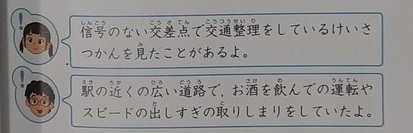 信号のない交差点で交通整理をしているけいさ
つかんを見たことがあるよ。
駅の近くの広い道路で、お酒を飲んでの運転や
スピードの出しすぎの取りしまりをしていたよ。